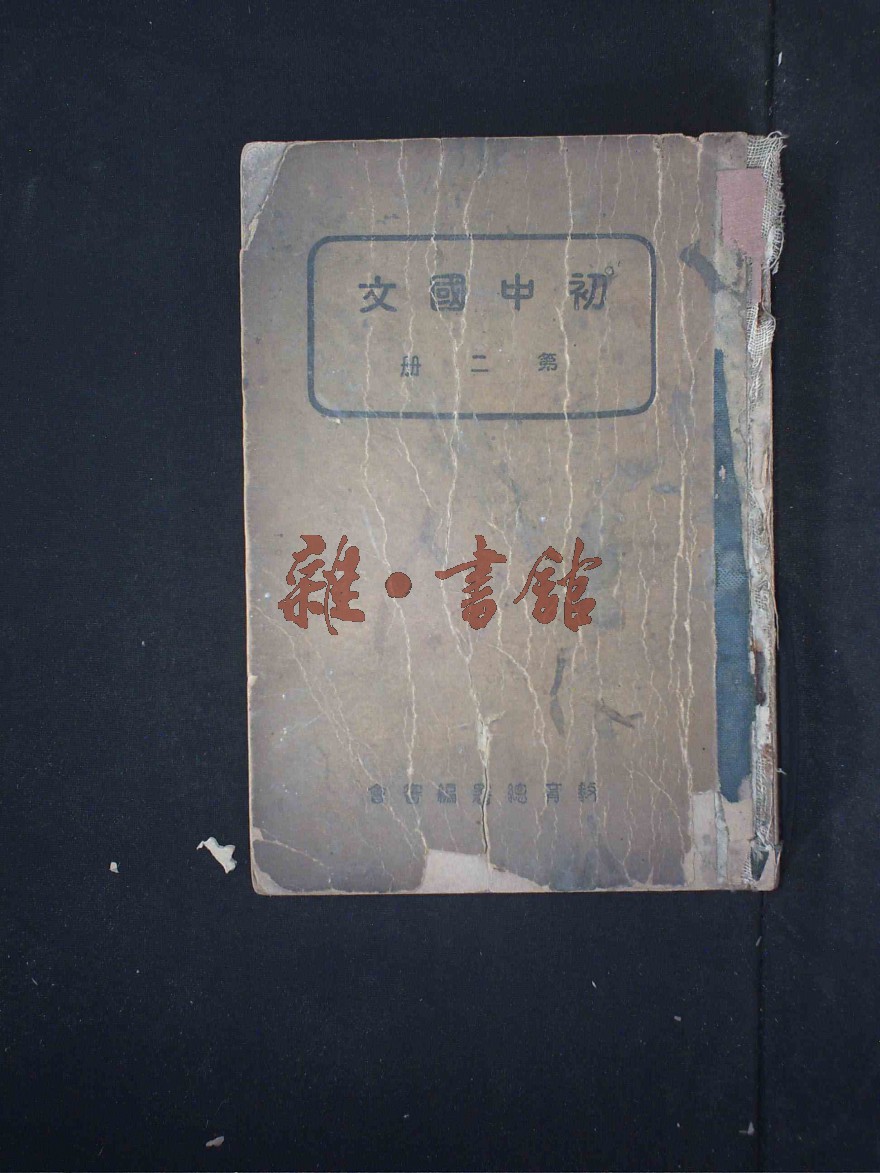 初中國文
第二册
雜·書館
教育總署編審會